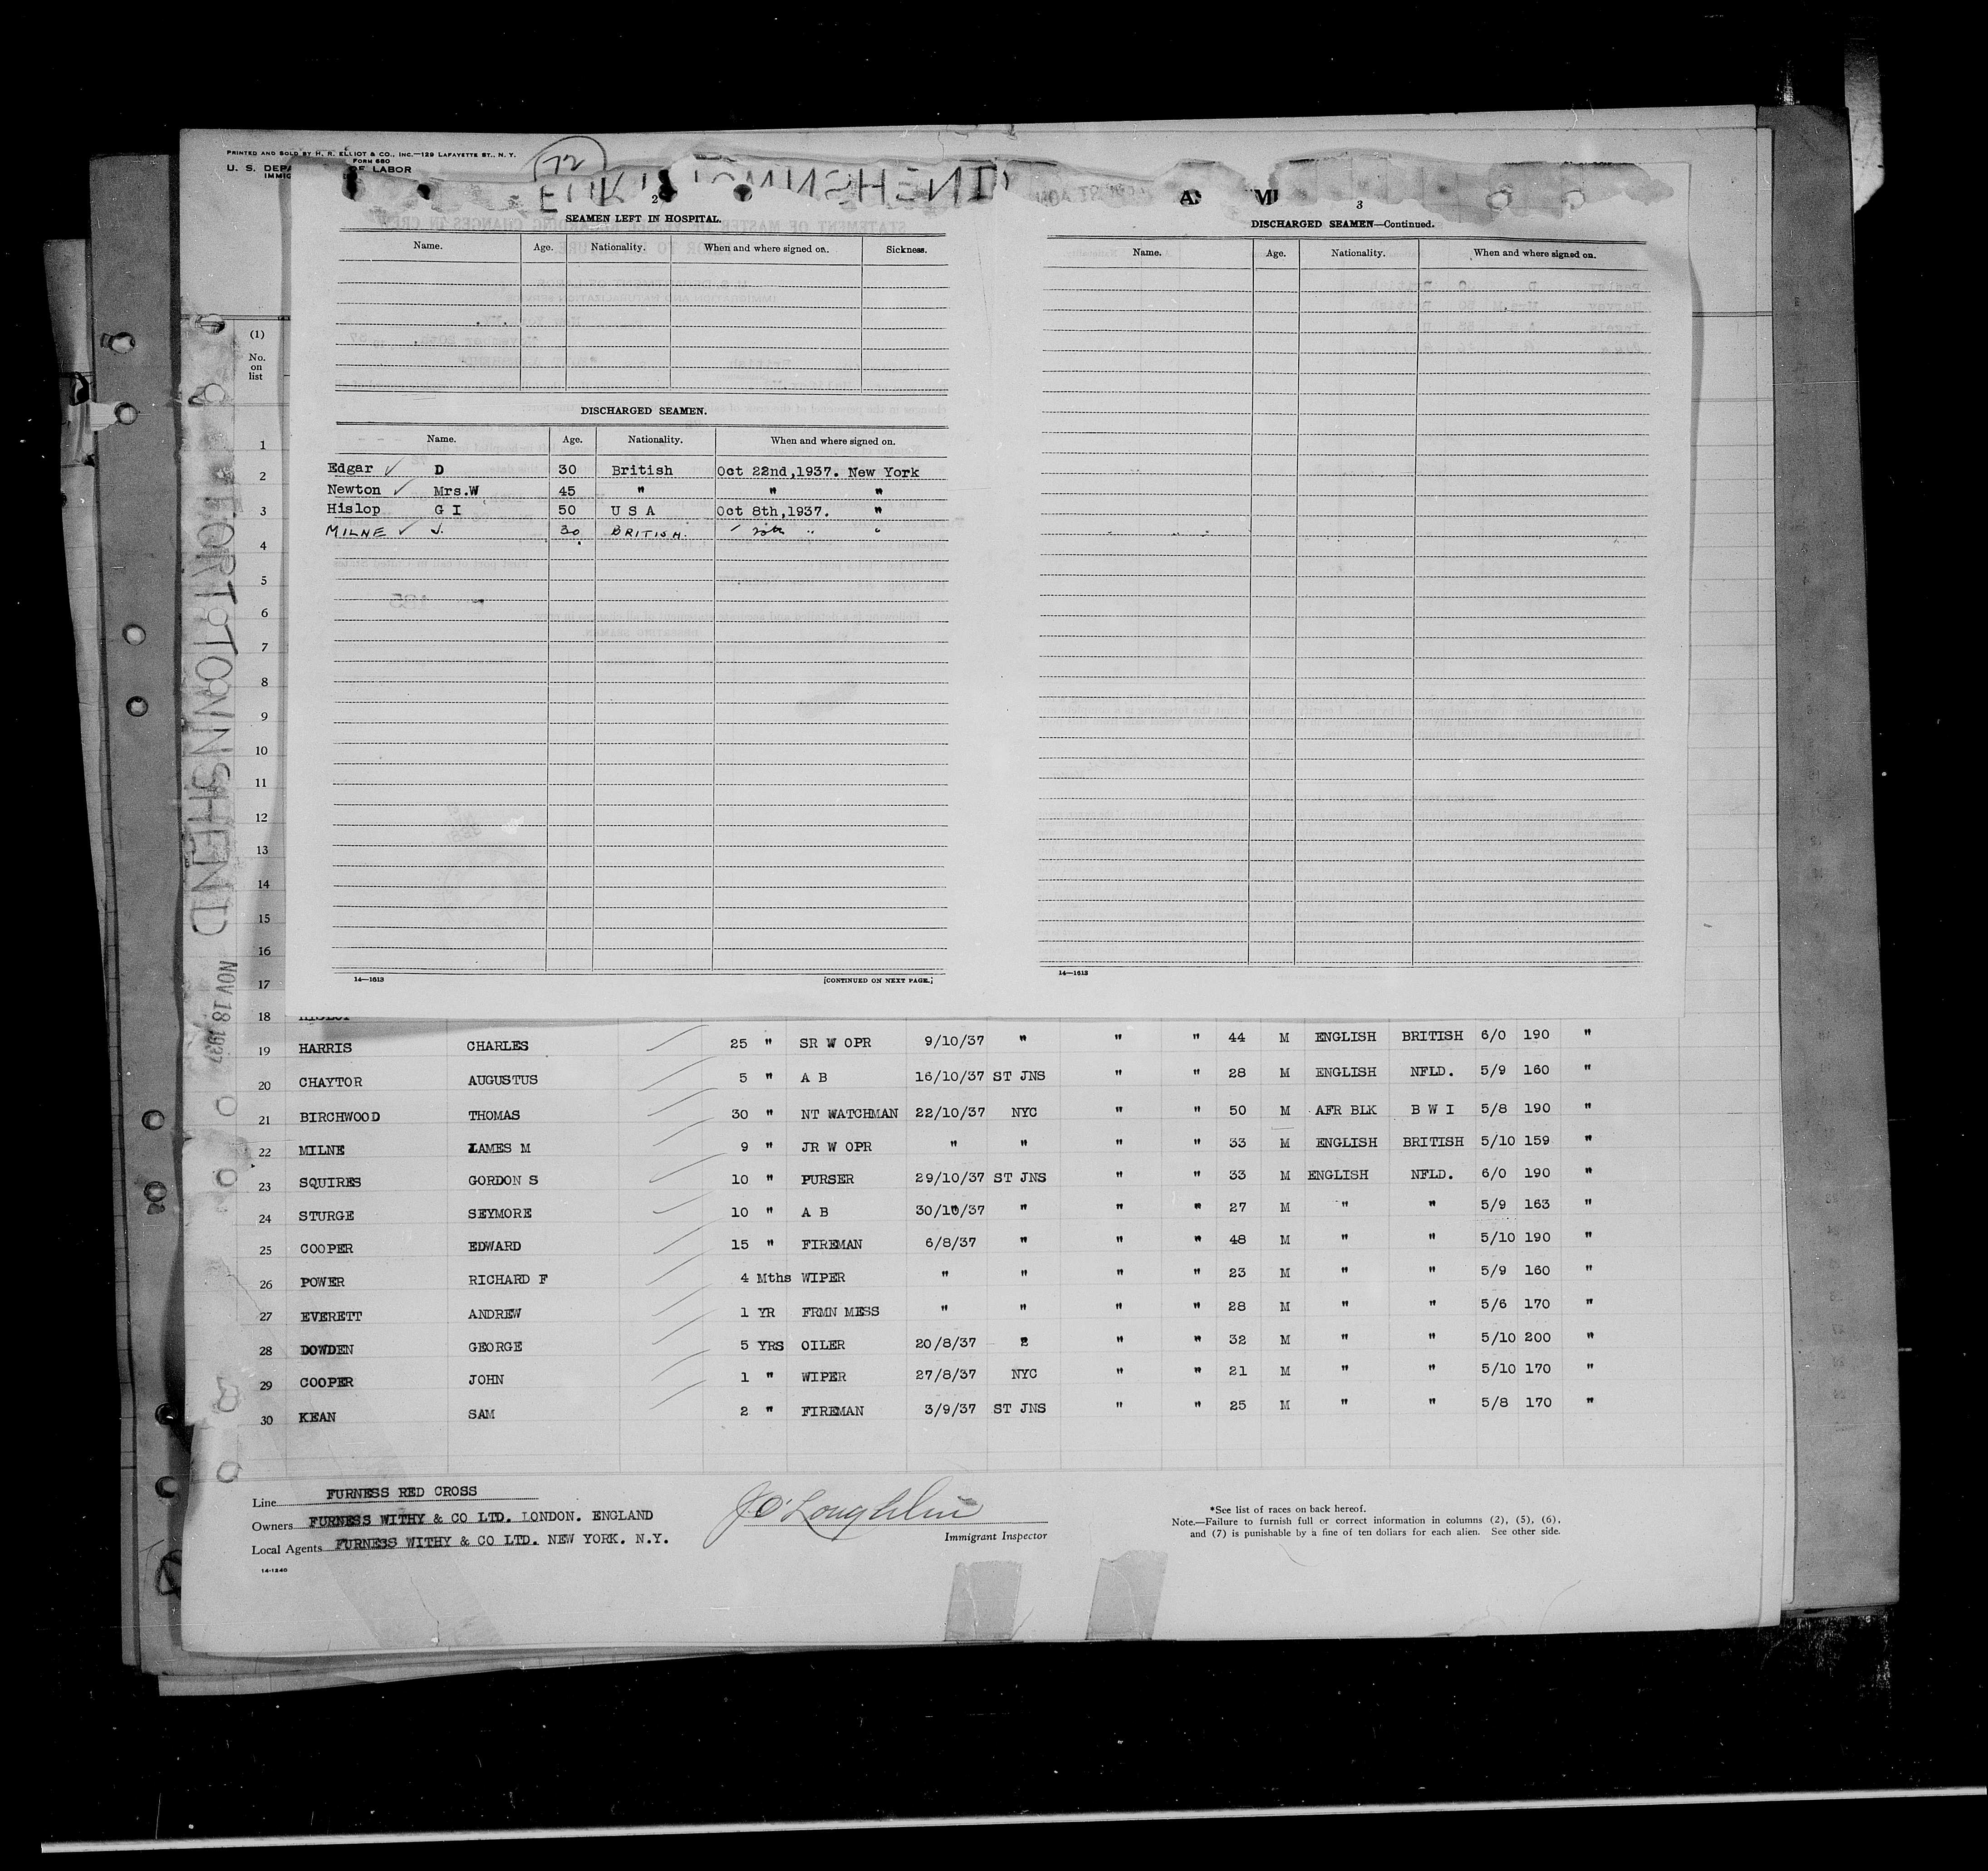 PRINTED AND SOLD BY H. R. ELLIOT & CO., INC.—129 LAFAYETTE ST., N. Y.
FORM 680
U. S. DEPA OF LABOR
IMMIG
72
FORT TOWNSHEND
2
SEAMEN LEFT IN HOSPITAL.
Name. Age. Nationality. When and where signed on. Sickness.
DISCHARGED SEAMEN.
Name. Age. Nationality. When and where signed on.
Edgar ✓ D 30 British Oct 22nd,1937. New York
Newton ✓ Mrs.W 45 " " "
Hislop G I 50 U S A Oct 8th,1937. "
MILNE ✓ J. 30 BRITISH. " "
14—1613 [CONTINUED ON NEXT PAGE.]
3
DISCHARGED SEAMEN—Continued.
Name. Age. Nationality. When and where signed on.
14—1613
FORT TOWNSHEND
NOV 18 1937
(1)
No.
on
list
1
2
3
4
5
6
7
8
9
10
11
12
13
14
15
16
17
18 HISLOP
19 HARRIS CHARLES 25 " SR W OPR 9/10/37 " " " 44 M ENGLISH BRITISH 6/0 190 "
20 CHAYTOR AUGUSTUS 5 " A B 16/10/37 ST JNS " " 28 M ENGLISH NFLD. 5/9 160 "
21 BIRCHWOOD THOMAS 30 " NT WATCHMAN 22/10/37 NYC " " 50 M AFR BLK B W I 5/8 190 "
22 MILNE LAMES M 9 " JR W OPR " " " " 33 M ENGLISH BRITISH 5/10 159 "
23 SQUIRES GORDON S 10 " PURSER 29/10/37 ST JNS " " 33 M ENGLISH NFLD. 6/0 190 "
24 STURGE SEYMORE 10 " A B 30/10/37 " " " 27 M " " 5/9 163 "
25 COOPER EDWARD 15 " FIREMAN 6/8/37 " " " 48 M " " 5/10 190 "
26 POWER RICHARD F 4 Mths WIPER " " " " 23 M " " 5/9 160 "
27 EVERETT ANDREW 1 YR FRMN MESS " " " " 28 M " " 5/6 170 "
28 DOWDEN GEORGE 5 YRS OILER 20/8/37 2 " " 32 M " " 5/10 200 "
29 COOPER JOHN 1 " WIPER 27/8/37 NYC " " 21 M " " 5/10 170 "
30 KEAN SAM 2 " FIREMAN 3/9/37 ST JNS " " 25 M " " 5/8 170 "
Line FURNESS RED CROSS
Owners FURNESS WITHY & CO LTD. LONDON. ENGLAND
Local Agents FURNESS WITHY & CO LTD. NEW YORK. N.Y.
14-1240
J O'Loughlin
Immigrant Inspector
*See list of races on back hereof.
Note.—Failure to furnish full or correct information in columns (2), (5), (6),
and (7) is punishable by a fine of ten dollars for each alien. See other side.